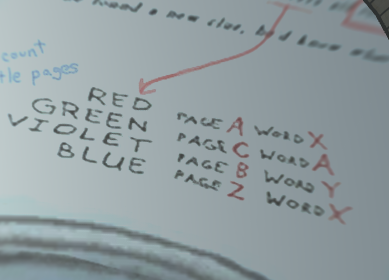 need a new clue, but I know
count
tle pages
RED PAGE A WORD X
GREEN PAGE C WORD A
VIOLET PAGE B WORD Y
BLUE PAGE Z WORD X